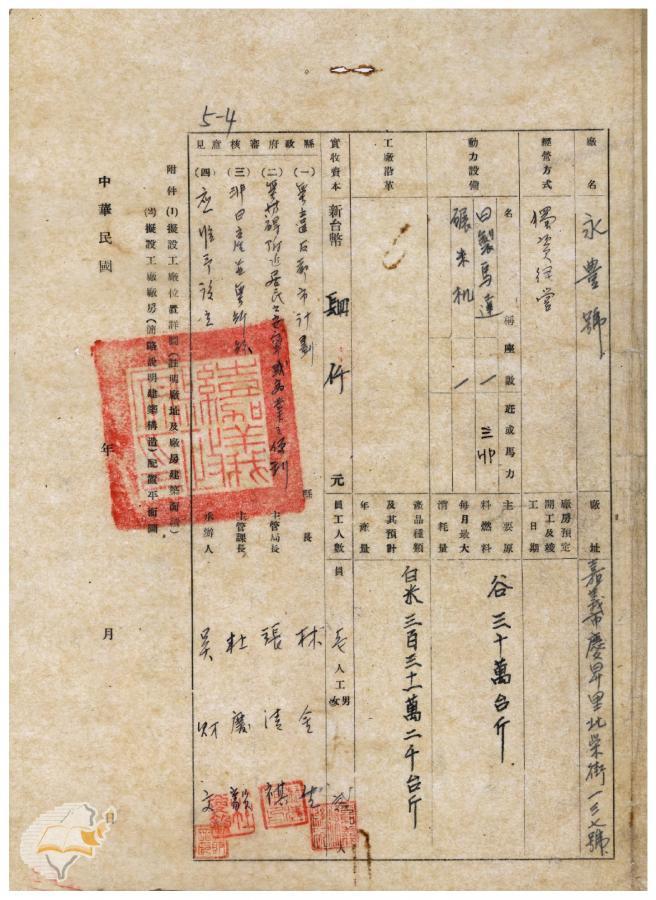 5-4
廠名 永豊號
廠址 嘉義市慶昇里北榮街一三七號
經營方式 獨資經營
廠房預定開工及竣工日期
動力設備 名稱 座數 班或馬力
日製馬達 一 三HP
碾米机 一
主要原料燃料每月最大消耗量
谷 三十萬台斤
工廠沿革
產品種類及其預計年產量
白米 三百三十一萬二千台斤
實收資本 新台幣 肆仟 元
員工人數 員 人 工 男 女 人
縣政府審核意見
(一) 無違反都市計劃
(二) 無妨碍附近居民
(三) 非日產
(四) 應准予設立
縣長 林金生
主管局長 張清祺
主管課長 杜慶
承辦人 吳財文
附件 (1) 擬設工廠位置詳圖(註明廠址及廠房建築面積)
(2) 擬設工廠廠房(簡略說明建築構造)配置平面圖
中華民國 年 月 日